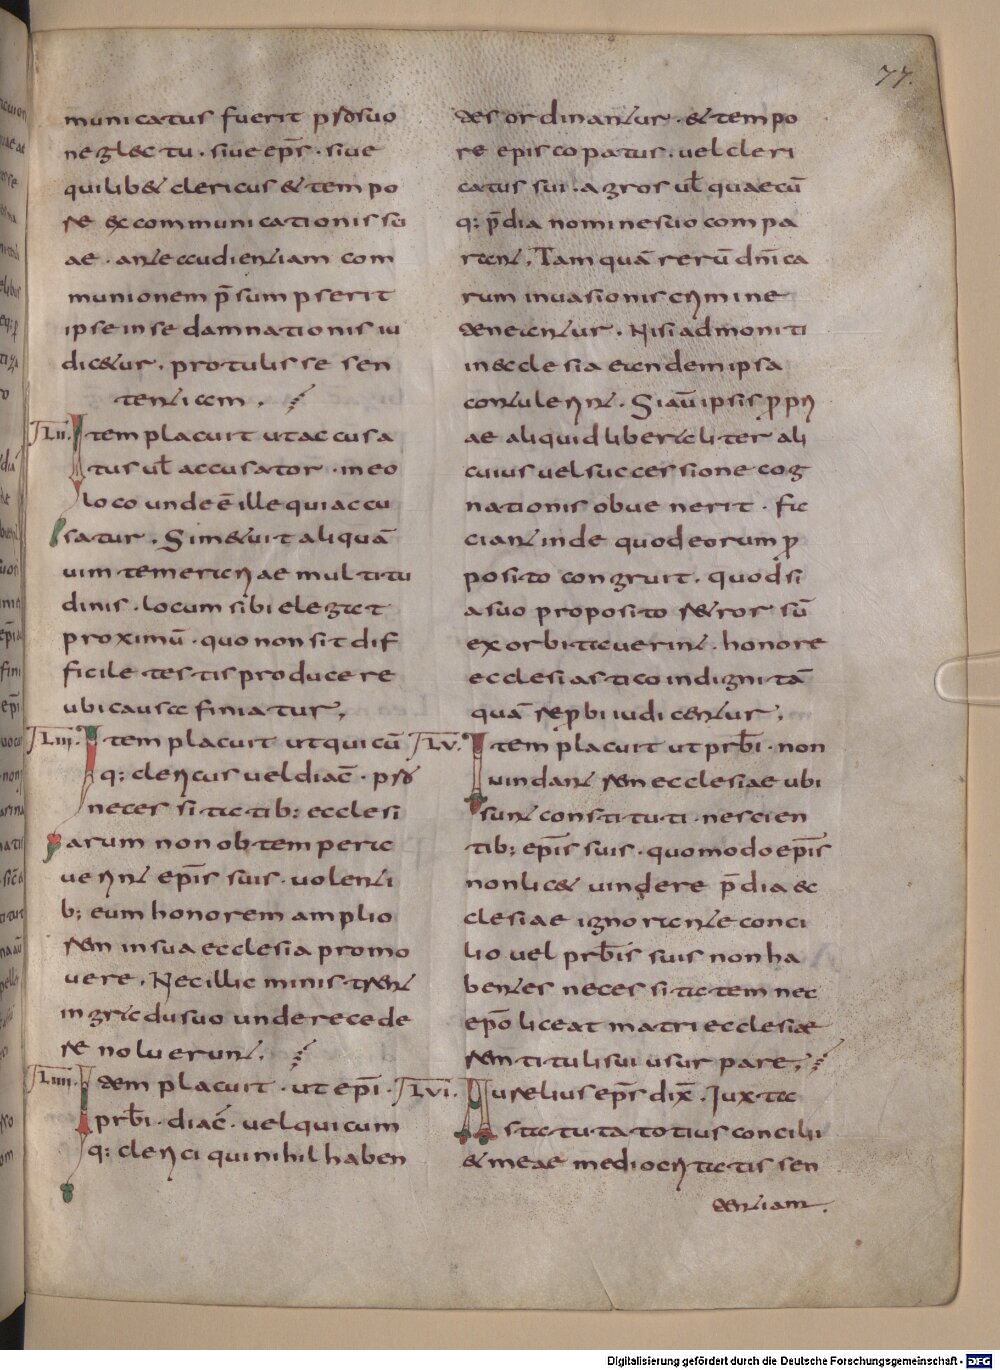 77.
municatus fuerit p sosuo
neglectu · siue ep̄s · siue
quilib& clericus & tempo
re excommunicationis su
ae · ante audientiam com
munionem p̄sumpserit
ipse in se damnationis iu
dic&ur · protulisse sen
tentiam .
LII. Item placuit ut accusa
tus ul̄ accusator · in eo
loco unde ē ille qui accu
satur . Si m&uit aliquā
uim temerariae multitu
dinis · locum sibi elegat
proximū · quo non sit dif
ficile testis producere
ubi causa finiatur ,
LIII. Item placuit ut qui cū
q: clericus uel diac̄ · p so
necessitatib: ecclesi
arum non obtempera
uerint ep̄is suis · uolenti
b; eum honorem amplio
rem in sua ecclesia promo
uere . Nec illic ministrent
in gradu suo unde recede
re noluerunt .
LIIII. Idem placuit · ut ep̄i ·
prb̄i · diac̄ · uel qui cum
q: clerici qui nihil haben
des ordinantur · & tempo
re episcopatus · uel cleri
catus sui · agros ul̄ quaecū
q: p̄dia nomine suo compa
rant , Tam quā rerū dn̄ica
rum inuasionis crimine
deneantur . Nisi admoniti
in ecclesia eandem ipsa
contulerint . Si aū ipsis ꝓpri
ae aliquid liberaliter ali
cuius uel successione cog
nationis obuenerit · fa
ciant inde quod eorum ꝓ
posito congruit . quodsi
a suo proposito retror sū
exorbitauerint . honore
ecclesiastico indigni tā
quā reprbi iudicentur .
LV. Item placuit ut prb̄i · non
uindant rem ecclesiae ubi
sunt constituti · nescien
tib; ep̄is suis · quomodo ep̄is
non lic& uindere p̄dia ec
clesiae ignorante conci
lio uel prb̄is suis non ha
bentes necessitatem nec
ep̄o liceat matri ecclesiae
rem tituli sui usurpare ,
LVI. Aurelius ep̄s dix̄ . Juxta
statuta totius concilii
& meae mediocritatis sen
dentiam .
Digitalisierung gefördert durch die Deutsche Forschungsgemeinschaft - DFG